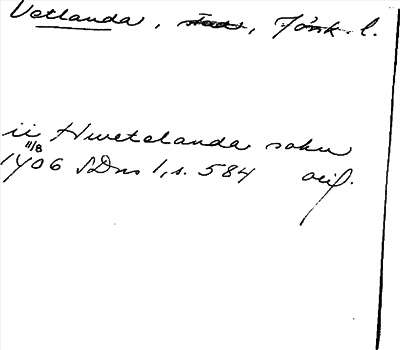 Vetlanda, stad, Jönk. l.
ii Hwetelanda sokn
11/8
1406 SDns 1, s. 584 orig.